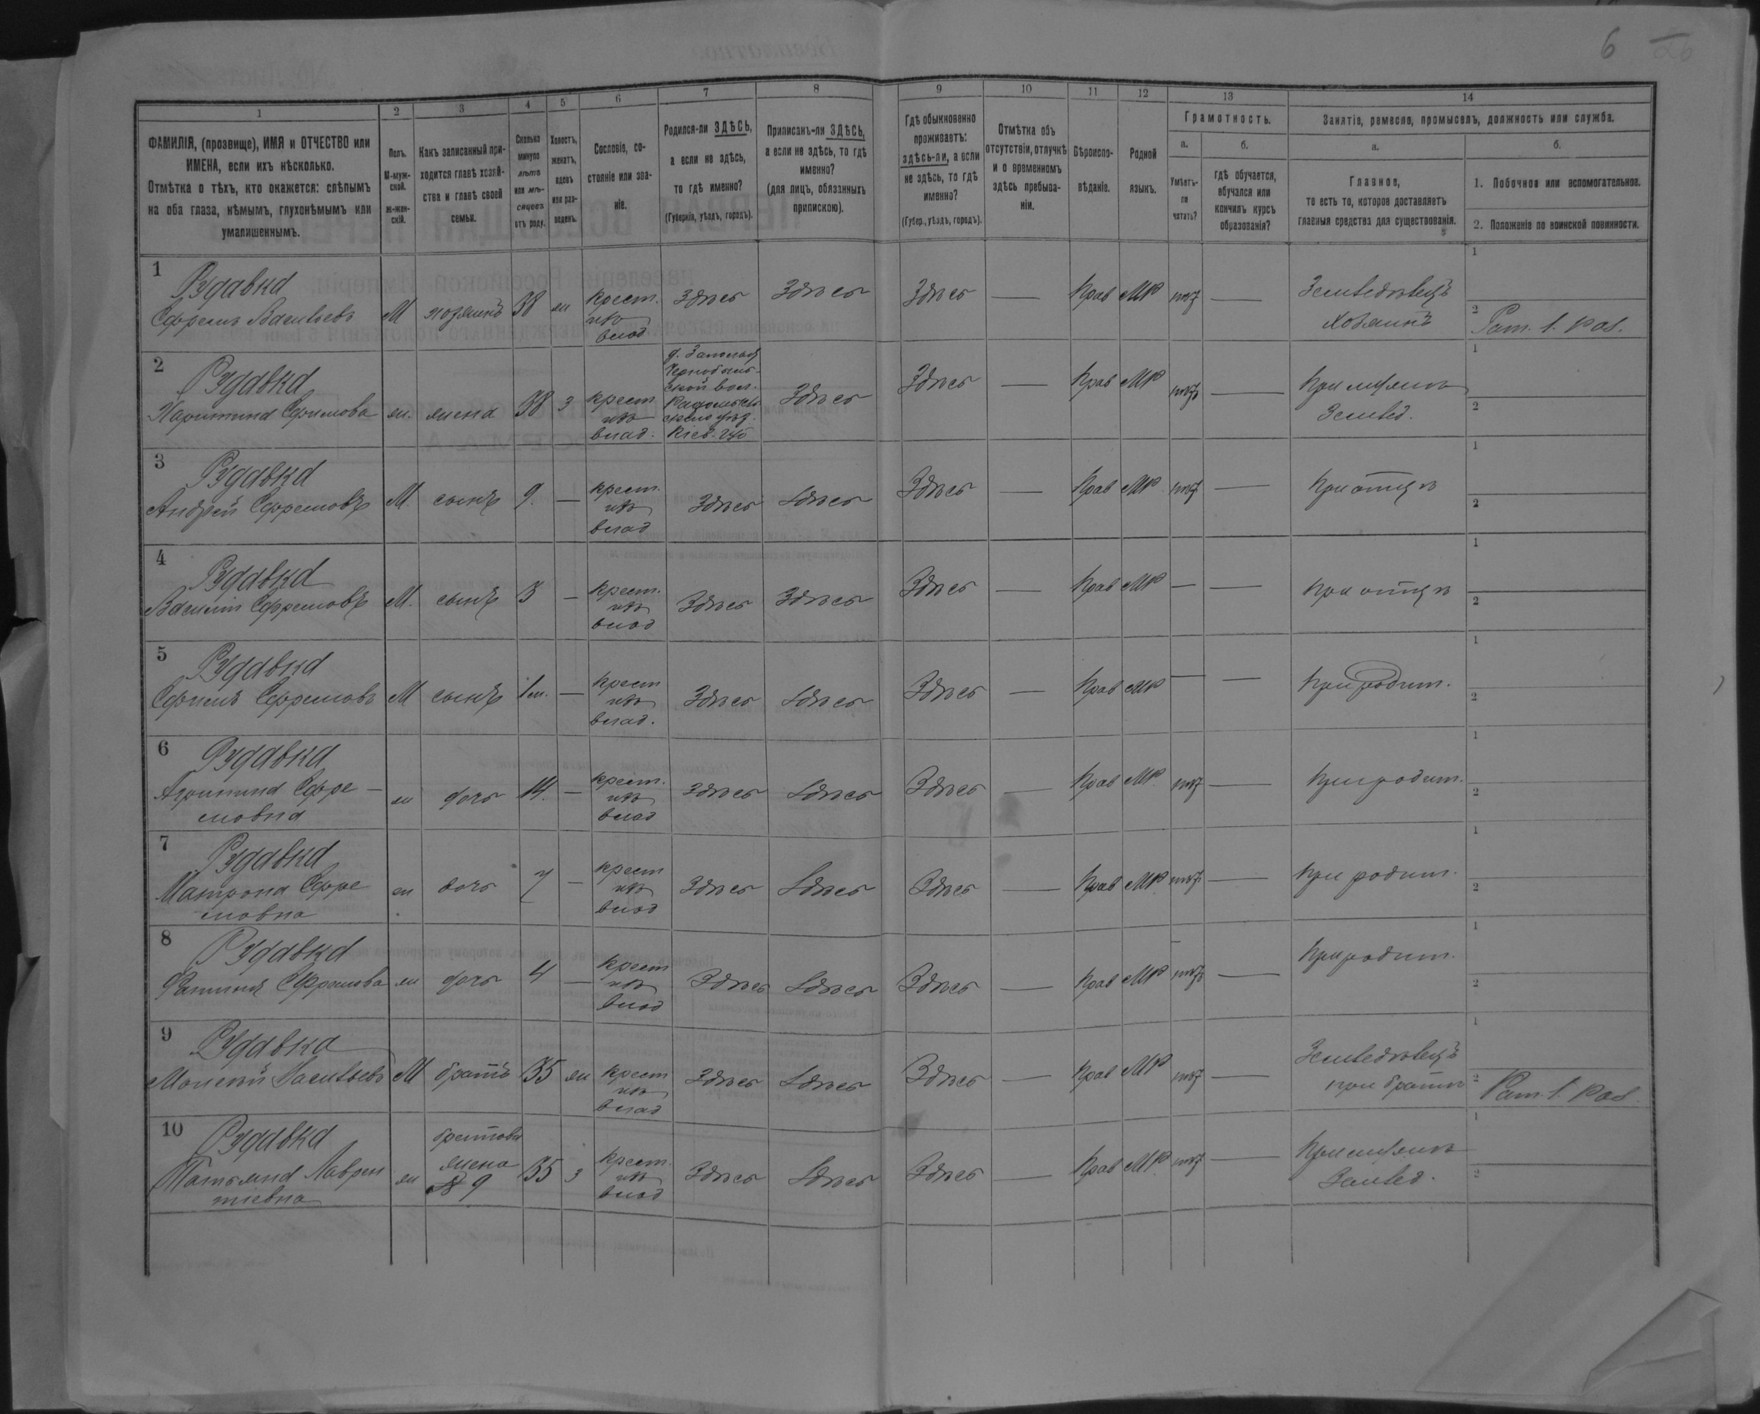 6
1 2 3 4 5 6 7 8 9 10 11 12 13 14
ФАМИЛІЯ, (прозвище), ИМЯ и ОТЧЕСТВО или
ИМЕНА, если ихъ нѣсколько.
Отмѣтка о тѣхъ, кто окажется: слѣпымъ
на оба глаза, нѣмымъ, глухонѣмымъ или
умалишеннымъ.
Полъ.
М-муж-
ской.
ж-жен-
скій.
Какъ записанный при-
ходится главѣ хозяй-
ства и главѣ своей
семьи.
Сколько
минуло
лѣтъ
или мѣ-
сяцевъ
отъ роду.
Холостъ,
женатъ,
вдовъ
или раз-
веденъ.
Сословіе, со-
стояніе или зва-
ніе.
Родился-ли ЗДѢСЬ,
а если не здѣсь,
то гдѣ именно?
(Губернія, уѣздъ, городъ).
Приписанъ-ли ЗДѢСЬ,
а если не здѣсь, то гдѣ
именно?
(для лицъ, обязанныхъ
припискою).
Гдѣ обыкновенно
проживаетъ:
здѣсь-ли, а если
не здѣсь, то гдѣ
именно?
(Губер., уѣздъ, городъ).
Отмѣтка объ
отсутствіи, отлучкѣ
и о временномъ
здѣсь пребыва-
ніи.
Вѣроиспо-
вѣданіе.
Родной
языкъ.
Грамотность.
а.
Умѣетъ-
ли
читать?
б.
гдѣ обучается,
обучался или
кончилъ курсъ
образованія?
Занятіе, ремесло, промыселъ, должность или служба.
а.
Главное,
то есть то, которое доставляетъ
главныя средства для существованія.
б.
1. Побочное или вспомогательное.
2. Положеніе по воинской повинности.
1 Рудавка
Ефремъ Васильевъ М хозяинъ 38 ж крест. изъ влад Здѣсь Здѣсь Здѣсь — Прав МР нѣт — Земледѣлецъ
Хозяинъ
2 Рудавка
Харитина Ефимова ж. жена 38 з крест изъ влад. Здѣсь Здѣсь — Прав МР нѣт — При мужѣ
Землед.
3 Рудавка
Андрей Ефремовъ М. сынъ 9. — крест. изъ влад Здѣсь Здѣсь Здѣсь — Прав МР нѣт — При отцѣ
4 Рудавка
Василій Ефремовъ М. сынъ 3 — крест. изъ влад Здѣсь Здѣсь Здѣсь — Прав МР — — При отцѣ
5 Рудавка
Ефремовъ М сынъ 1м. — крест изъ влад. Здѣсь Здѣсь Здѣсь — Прав МР — — При родит.
6 Рудавка
Ефре-
мовна ж дочь 14. — крест. изъ влад Здѣсь Здѣсь Здѣсь — Прав МР нѣт — При родит.
7 Рудавка
Матрона Ефре
мовна ж дочь 7 — крест изъ влад Здѣсь Здѣсь Здѣсь — Прав МР нѣт — При родит.
8 Рудавка
ж дочь 4 — крест изъ влад Здѣсь Здѣсь Здѣсь — Прав МР нѣт — При родит.
9 Рудавка
Моисей Васильевъ М братъ 35 ж крест изъ влад Здѣсь Здѣсь Здѣсь — Прав МР нѣт — Земледѣлецъ
при братѣ
10 Рудавка
Татьяна Лаврен
тьевна ж братова
жена
9 35 з крест. изъ влад Здѣсь Здѣсь Здѣсь — Прав МР нѣт — При мужѣ
Землед.